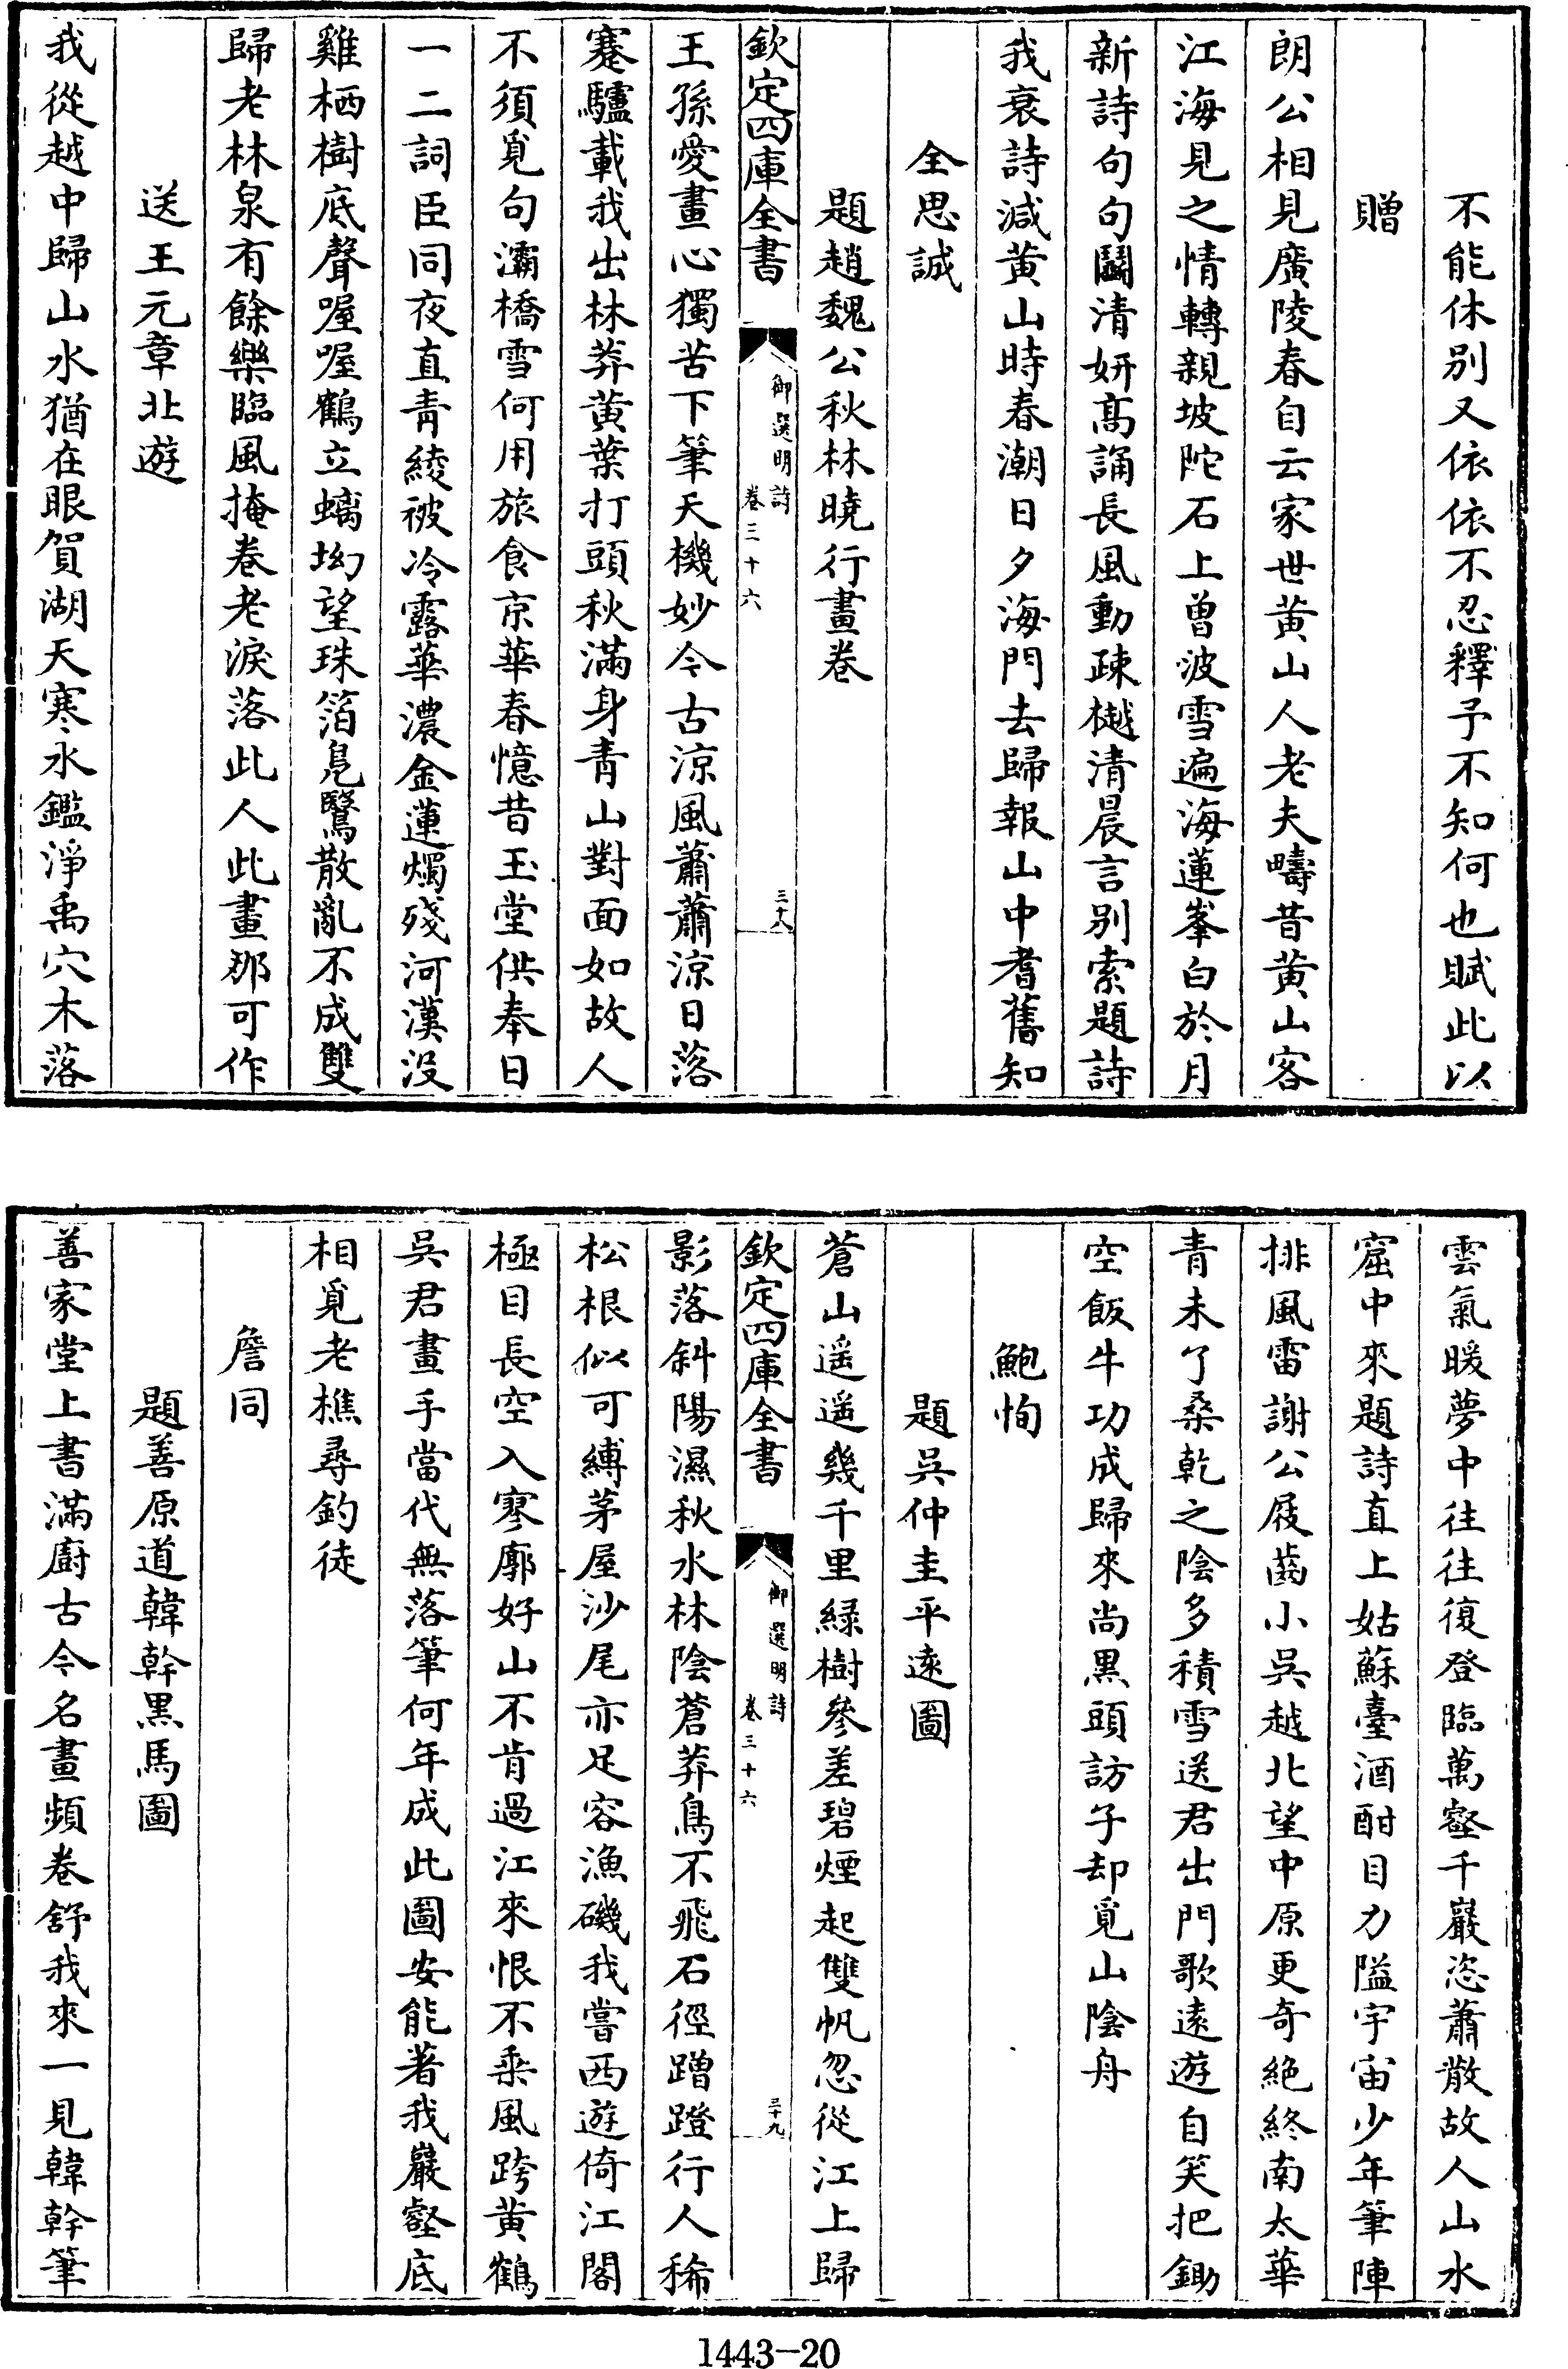 不能休别又依依不忍釋予不知何也賦此以
贈
朗公相見廣陵春自云家世黄山人老夫疇昔黄山客
江海見之情轉親坡陀石上曽波雪遍海蓮峯白於月
新詩句句鬭清妍髙誦長風動疎樾清晨言别索題詩
我衰詩減黄山時春潮日夕海門去歸報山中耆舊知
全思誠
題趙魏公秋林曉行畫卷
欽定四庫全書
御選明詩
卷三十六
三十八
王孫愛畫心獨苦下筆天機妙今古涼風蕭蕭涼日落
蹇驢載我出林莽黄葉打頭秋滿身青山對面如故人
不須覓句灞橋雪何用旅食京華春憶昔玉堂供奉日
一二詞臣同夜直青綾被冷露華濃金蓮燭殘河漢没
雞栖樹底聲喔喔鶴立螭坳望珠箔鳬鷖散亂不成雙
歸老林泉有餘樂臨風掩卷老淚落此人此畫那可作
送王元章北遊
我從越中歸山水猶在眼賀湖天寒水鑑淨禹穴木落
雲氣暖夢中往往復登臨萬壑千巖恣蕭散故人山水
窟中來題詩直上姑蘇臺酒酣目力隘宇宙少年筆陣
排風雷謝公屐齒小吳越北望中原更奇絶終南太華
青未了桑乾之陰多積雪送君出門歌遠遊自笑把鋤
空飯牛功成歸來尚黒頭訪子却覓山陰舟
鮑恂
題吳仲圭平遠圖
蒼山遥遥幾千里緑樹參差碧煙起雙帆忽從江上歸
欽定四庫全書
御選明詩
卷三十六
三十九
影落斜陽濕秋水林陰蒼莽鳥不飛石徑蹭蹬行人稀
松根似可縛茅屋沙尾亦足容漁磯我嘗西遊倚江閣
極目長空入寥廓好山不肯過江來恨不乘風跨黄鶴
吳君畫手當代無落筆何年成此圖安能著我巖壑底
相覓老樵尋釣徒
詹同
題善原道韓幹黒馬圖
善家堂上書滿廚古今名畫頻卷舒我來一見韓幹筆
1443-20